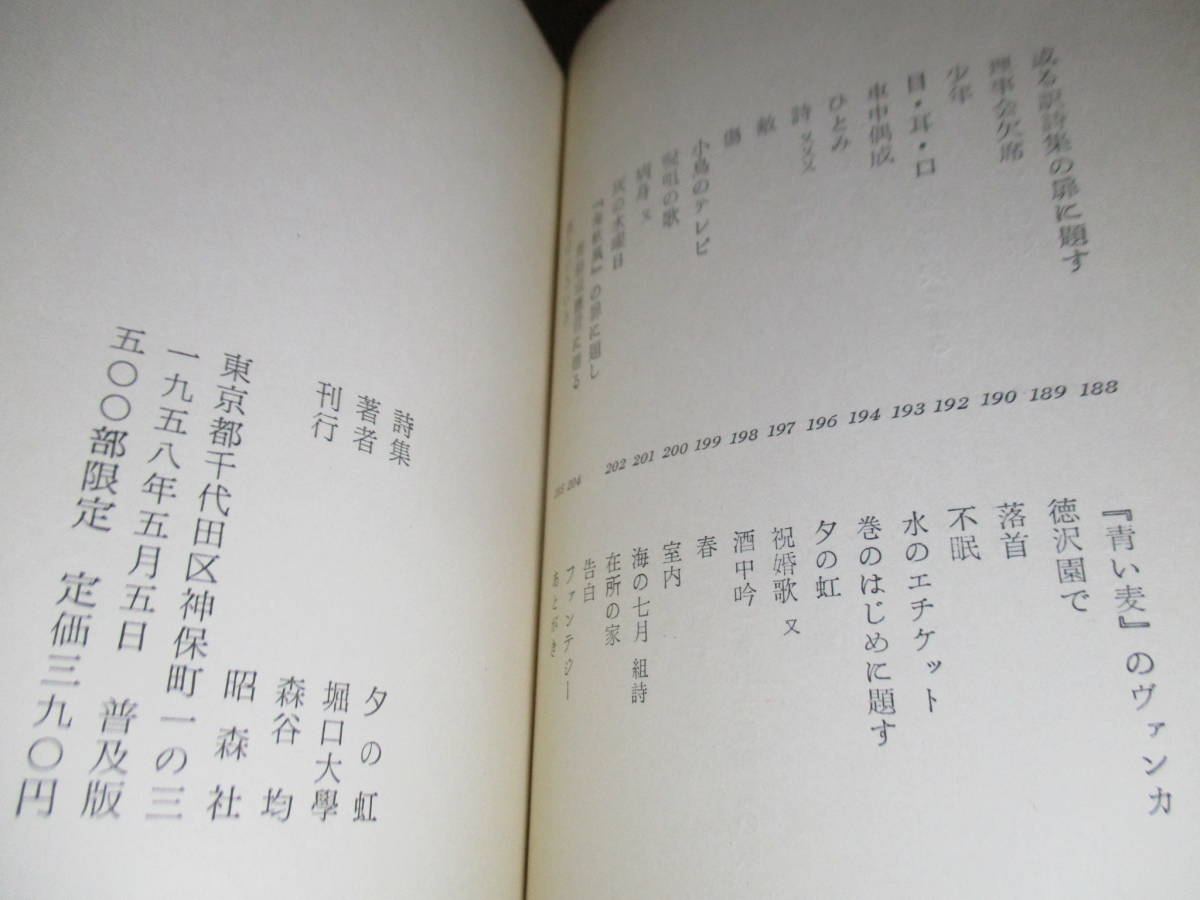 或る訳詩集の扉に題す
理事会欠席
少年
目・耳・口
車中偶成
ひとみ
詩 又又又
敵
傷
小鳥のテレビ
の歌
病身 又
灰の水曜日
の扉に題し
188
189
190
192
193
194
196
197
198
199
200
201
202
204
205
『青い麦』のヴァンカ
徳沢園で
落首
不眠
水のエチケット
巻のはじめに題す
夕の虹
祝婚歌 又
酒中吟
春
室内
海の七月 組詩
在所の家
告白
ファンテジー
あとがき
詩集 夕の虹
著者 堀口大學
刊行 森谷均
昭森社
東京都千代田区神保町一の三
一九五八年五月五日 普及版
五〇〇部限定 定価三九〇円